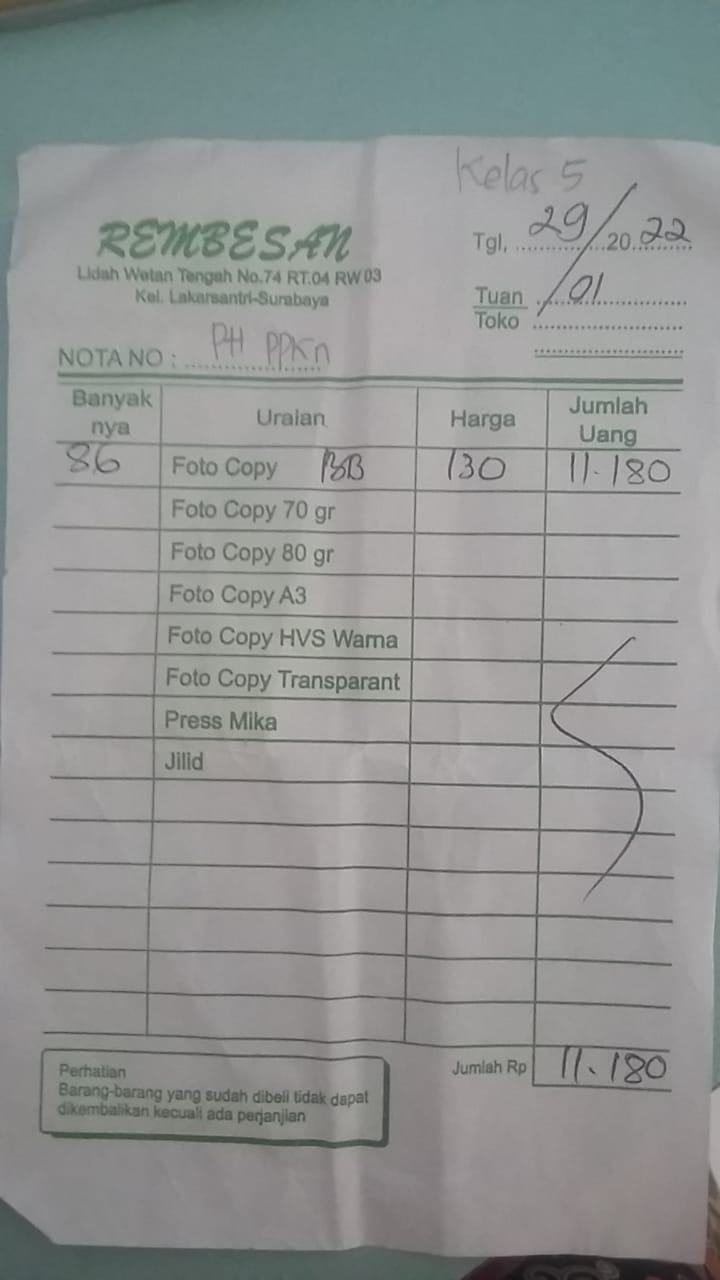 Kelas 5
REMBESAN
Lidah Wetan Tengah No.74 RT.04 RW 03
Kel. Lakarsantri-Surabaya
Tgl, 29/ 20 22
Tuan /01
Toko
NOTA NO : PH PPKn
Banyak nya Uraian Harga Jumlah Uang
86 Foto Copy BB 130 11.180
Foto Copy 70 gr
Foto Copy 80 gr
Foto Copy A3
Foto Copy HVS Warna
Foto Copy Transparant
Press Mika
Jilid
Jumlah Rp 11.180
Perhatian
Barang-barang yang sudah dibeli tidak dapat
dikembalikan kecuali ada perjanjian